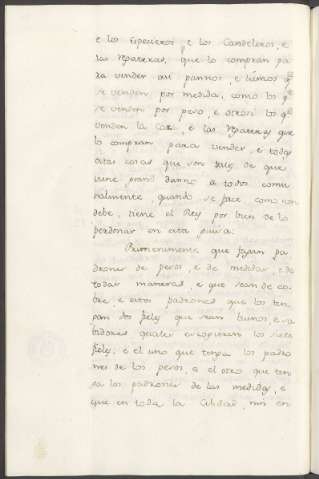 e los Especieros e los Candeleros, e
las Regateras, que lo compran pa
ra vender asi pannos, e lienzos q.e
se venden por medida, como los q.e
se venden por peso, e otrosi los q.e
venden la cera, e las Regateras que
lo compran para vender e todas
estas cosas que son tales de que
viene grand danno a todos comu
nalmente, quando se face como non
debe, tiene el Rey por bien de lo
perdonar en esta guisa:
Primeramente que hayan pa
drones de pesos, e de medidas, e de
todas maneras, e que sean de co
bre, e estos padrones que los ten
gan dos fieles que sean buenos, e sa
bidores quales escogieren los siete
fieles; e el uno que tenga los padro
nes de los pesos, e el otro que ten
ga los padrones de las medidas, e
que en toda la Cibdad, nin en